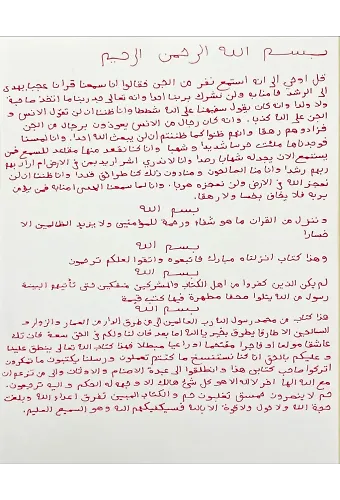 بسم الله الرحمن الرحيم
قل اوحي الي انه استمع نفر من الجن فقالوا انا سمعنا قرآنا عجبا يهدي
الى الرشد فآمنا به ولن نشرك بربنا احدا وانه تعالى جد ربنا ما اتخذ صاحبة
ولا ولدا وانه كان يقول سفيهنا على الله شططا وانا ظننا ان لن تقول الانس و
الجن على الله كذبا. وانه كان رجال من الانس يعوذون برجال من الجن
فزادوهم رهقا وانهم ظنوا كما ظننتم ان لن يبعث الله احدا. وانا لمسنا
فوجدناها ملئت حرسا شديدا وشهبا وانا كنا نقعد منها مقاعد للسمع فمن
يستمع الان يجد له شهابا رصدا وانا لا ندري اشر اريد بمن في الارض ام اراد بهم
ربهم رشدا وانا منا الصالحون ومنا دون ذلك كنا طرائق قددا وانا ظننا ان لن
نعجز الله في الارض ولن نعجزه هربا. وانا لما سمعنا الهدى امنا به فمن يؤمن
بربه فلا يخاف بخسا ولا رهقا.
بسم الله
وننزل من القران ما هو شفاء ورحمة للمؤمنين ولا يزيد الظالمين الا
خسارا
بسم الله
وهذا كتاب انزلناه مبارك فاتبعوه واتقوا لعلكم ترحمون
بسم الله
لم يكن الذين كفروا من اهل الكتاب والمشركين منفكين حتى تأتيهم البينة
رسول من الله يتلوا صحفا مطهرة فيها كتب قيمة
بسم الله
هذا كتاب من محمد رسول الله رب العالمين الى من طرق الدار من العمار والزوار و
الصالحين الا طارقا يطرق بخير يا الله اما بعد فان لنا ولكم في الحق سعة فان تك
عاشقا مولعا او فاجرا مقتحما او راعيا مبطلا فهذا كتاب الله تعالى ينطق علينا
و عليكم بالحق انا كنا نستنسخ ما كنتم تعملون ورسلنا يكتبون ما تمكرون
اتركوا صاحب كتابي هذا وانطلقوا الى عبدة الاصنام والاوثان والى من تزعم ان
مع الله الها اخر لا اله الا هو كل شئ هالك الا وجهه له الحكم و اليه ترجعون.
حم لا ينصرون حمعسق تغلبون حم والكتاب المبين تفرق اعداء الله وبلغت
حجة الله ولا حول ولا قوة الا بالله فسيكفيكهم الله وهو السميع العليم.